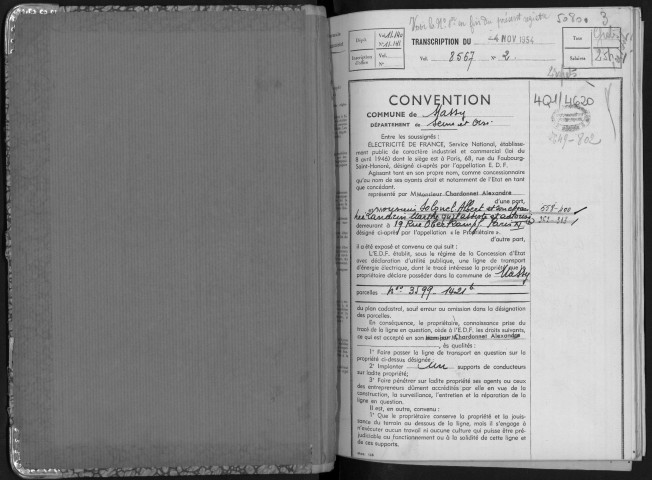 Voir le N° 8 en fin du présent registre
5080
3
Dépôt
Vol.
N°
TRANSCRIPTION DU
4 NOV 1954
Taxe
Inscription d'office
Vol.
N°
Vol. 8567 n° 2
Salaires
CONVENTION
4Q1/4620
COMMUNE de Massy
DÉPARTEMENT de Seine et Oise
Entre les soussignés :
ÉLECTRICITÉ DE FRANCE, Service National, établisse-
ment public de caractère industriel et commercial (loi du
8 avril 1946) dont le siège est à Paris, 68, rue du Faubourg-
Saint-Honoré, désigné ci-après par l'appellation E. D. F.
Agissant tant en son propre nom, comme concessionnaire
qu'au nom de ses ayants droit et notamment de l'Etat en tant
que concédant.
représenté par Monsieur Chardonnet Alexandre
d'une part,
Monsieur Albert et
demeurant à 19 Rue Oberkampf Paris XI
désigné ci-après par l'appellation « le Propriétaire ».
d'autre part,
il a été exposé et convenu ce qui suit :
L'E.D.F. établit, sous le régime de la Concession d'Etat
avec déclaration d'utilité publique, une ligne de transport
d'énergie électrique, dont le tracé intéresse la propriété que le
propriétaire déclare posséder dans la commune de Massy
parcelles Nos 3599 - 1421 b
du plan cadastral, sauf erreur ou omission dans la désignation
des parcelles.
En conséquence, le propriétaire, connaissance prise du
tracé de la ligne en question, cède à l'E.D.F. les droits suivants,
ce qui est accepté en son nom par M. Chardonnet Alexandre
, ès qualités :
1° Faire passer la ligne de transport en question sur la
propriété ci-dessus désignée ;
2° Implanter un supports de conducteurs
sur ladite propriété ;
3° Faire pénétrer sur ladite propriété ses agents ou ceux
des entrepreneurs dûment accrédités par elle en vue de la
construction, la surveillance, l'entretien et la réparation de la
ligne en question.
Il est, en outre, convenu :
1° Que le propriétaire conserve la propriété et la jouis-
sance du terrain au-dessous de la ligne, mais il s'engage à
n'exécuter aucun travail ni aucune culture qui puisse être pré-
judiciable au fonctionnement ou à la solidité de cette ligne et
de ces supports.